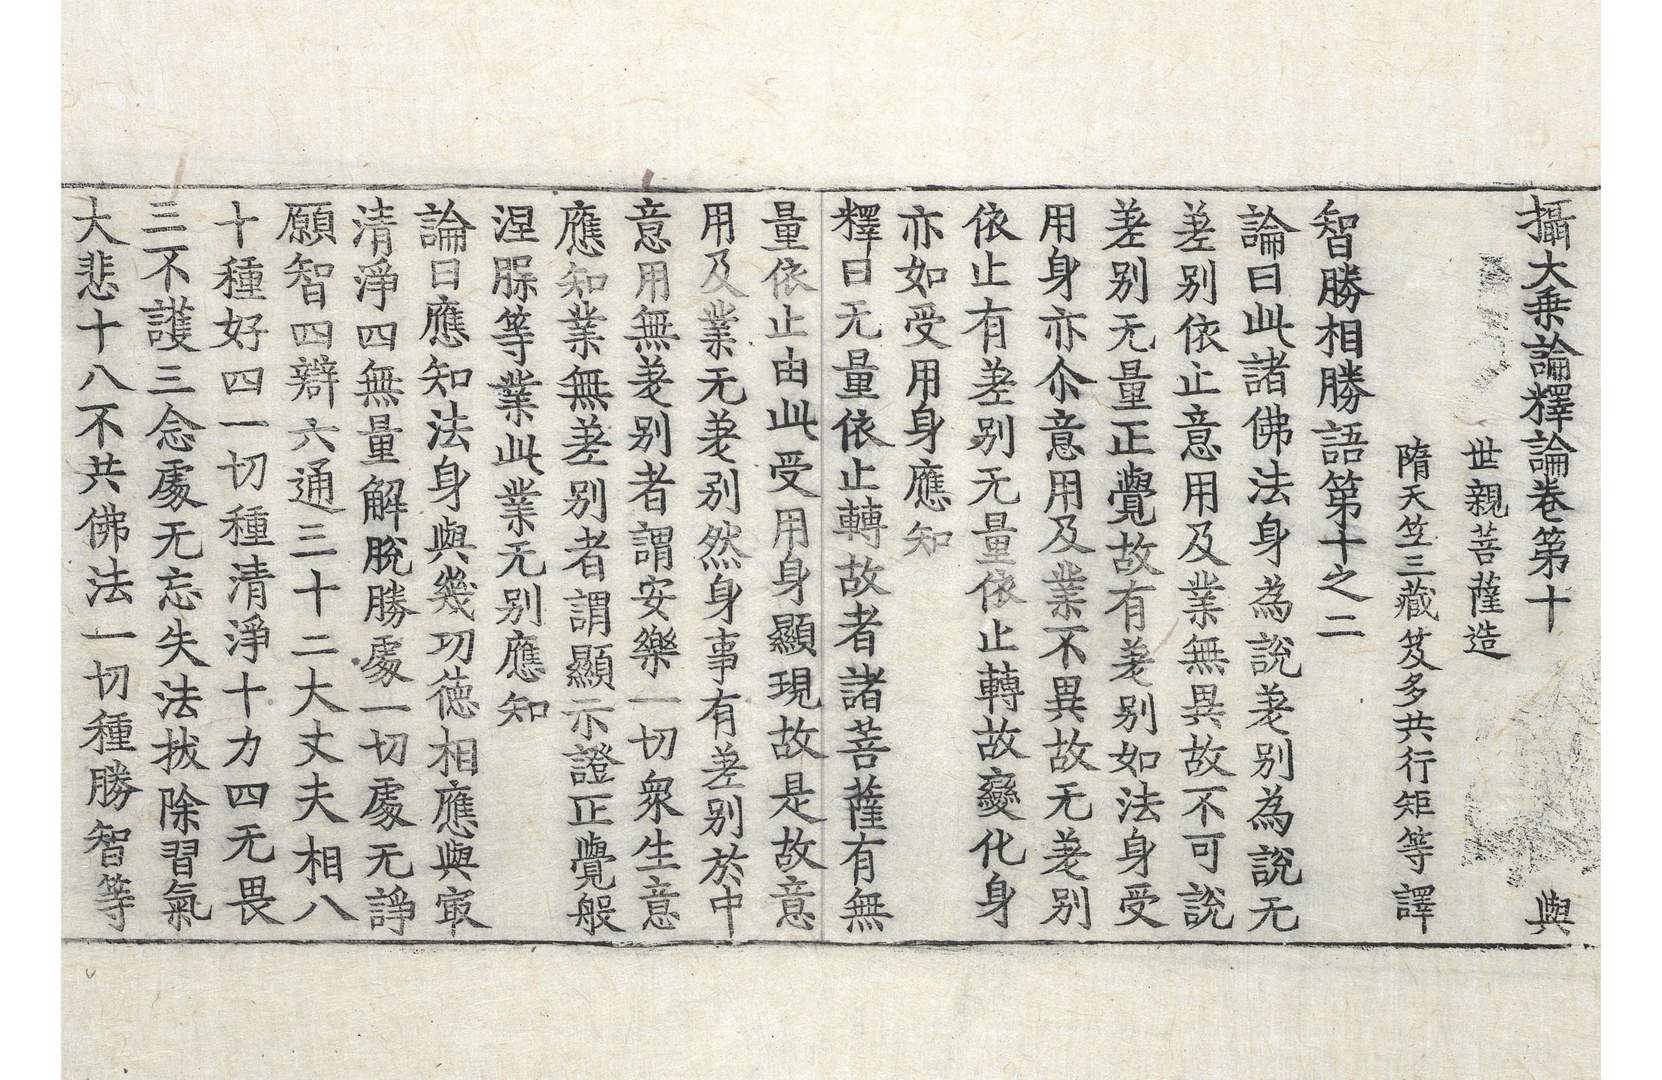 攝大乗論釋論卷第十 與
世親菩薩造
隋天笁三藏笈多共行矩等譯
智勝相勝語第十之二
論曰此諸佛法身為說差别為說无
差别依止意用及業無異故不可說
差别无量正覺故有差别如法身受
用身亦尒意用及業不異故无差别
依止有差别无量依止轉故變化身
亦如受用身應知
釋曰无量依止轉故者諸菩薩有無
量依止由此受用身顯現故是故意
用及業无差别然身事有差别於中
意用無差别者謂安樂一切衆生意
應知業無差别者謂顯示證正覺般
涅槃等業此業无别應知
論曰應知法身與幾功德相應與㝡
清淨四無量解脫勝處一切處无諍
願智四辯六通三十二大丈夫相八
十種好四一切種清淨十力四无畏
三不護三念處无忘失法拔除習氣
大悲十八不共佛法一切種勝智等